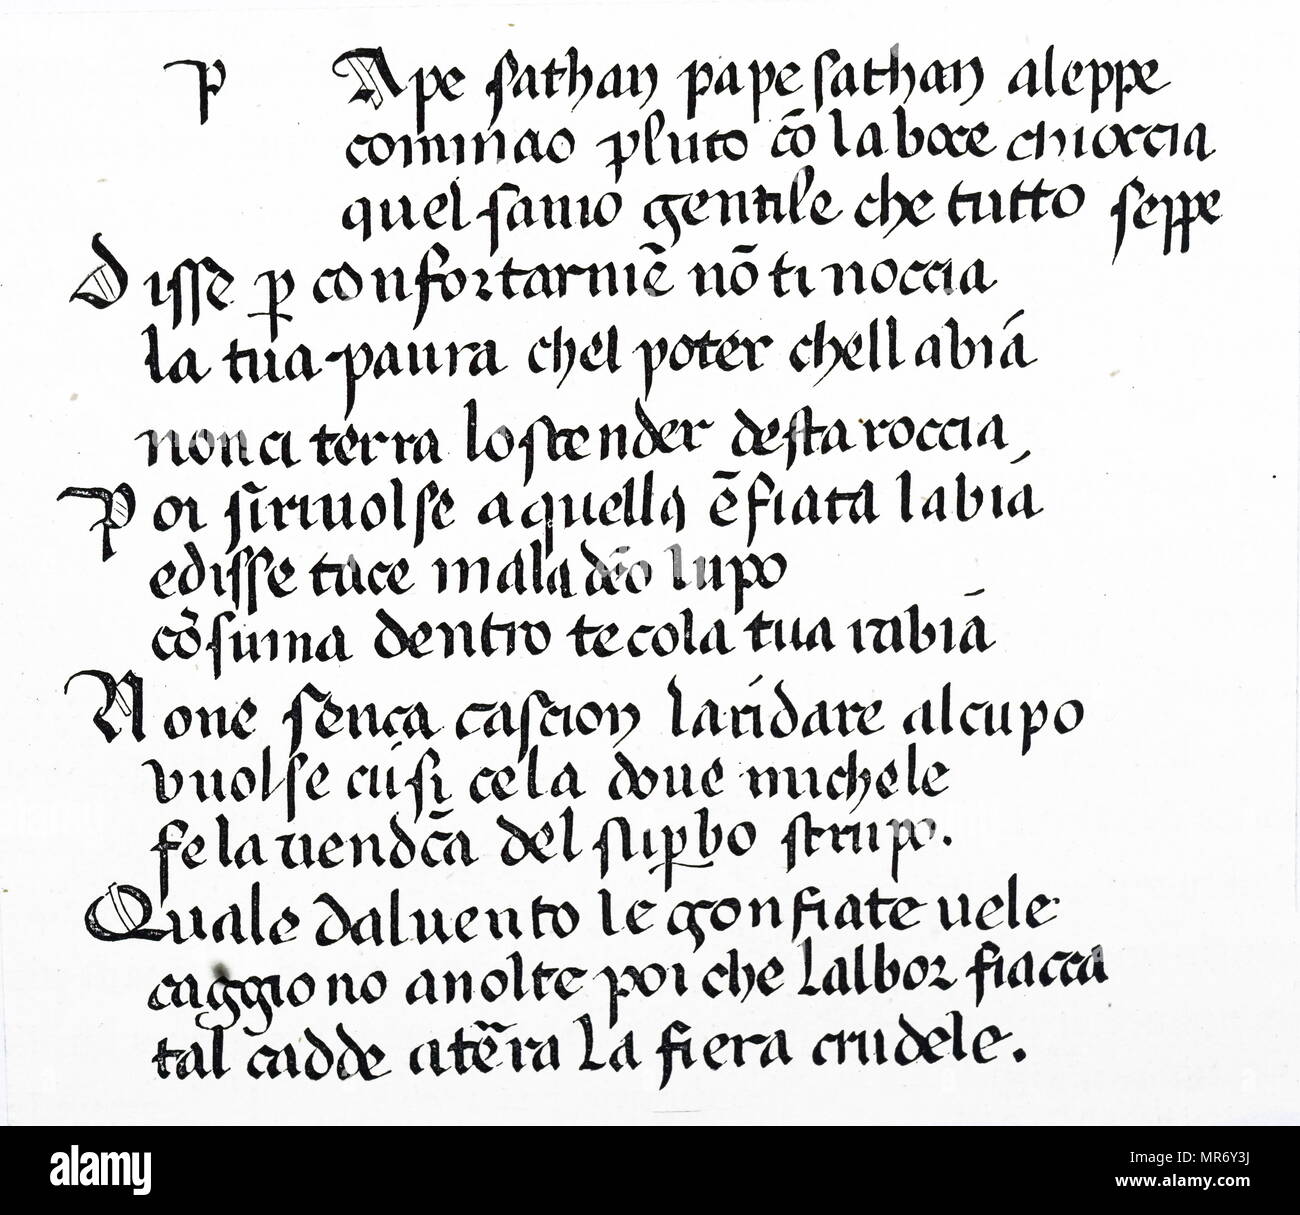 p Ape sathan pape sathan aleppe
cominao pluto cō la boce chioccia
quel sauio gentile che tutto seppe
Disse p confortarmē nō ti noccia
la tua paura chel poter chell abiá
non ci terra lo scender desta roccia
Poi si riuolse a quella ēfiata labiá
e disse tace maladeto lupo
cōsuma dentro te cola tua rabiá
Non e sença cascion laridare al cupo
vuolse cusi ce la doue michele
fe la uendcā del supbo strupo.
Quale dal uento le gonfiate uele
caggiono anolte poi che lalbor fiacca
tal cadde a tēra la fiera crudele.
alamy
Image ID: MR6Y3J
www.alamy.com